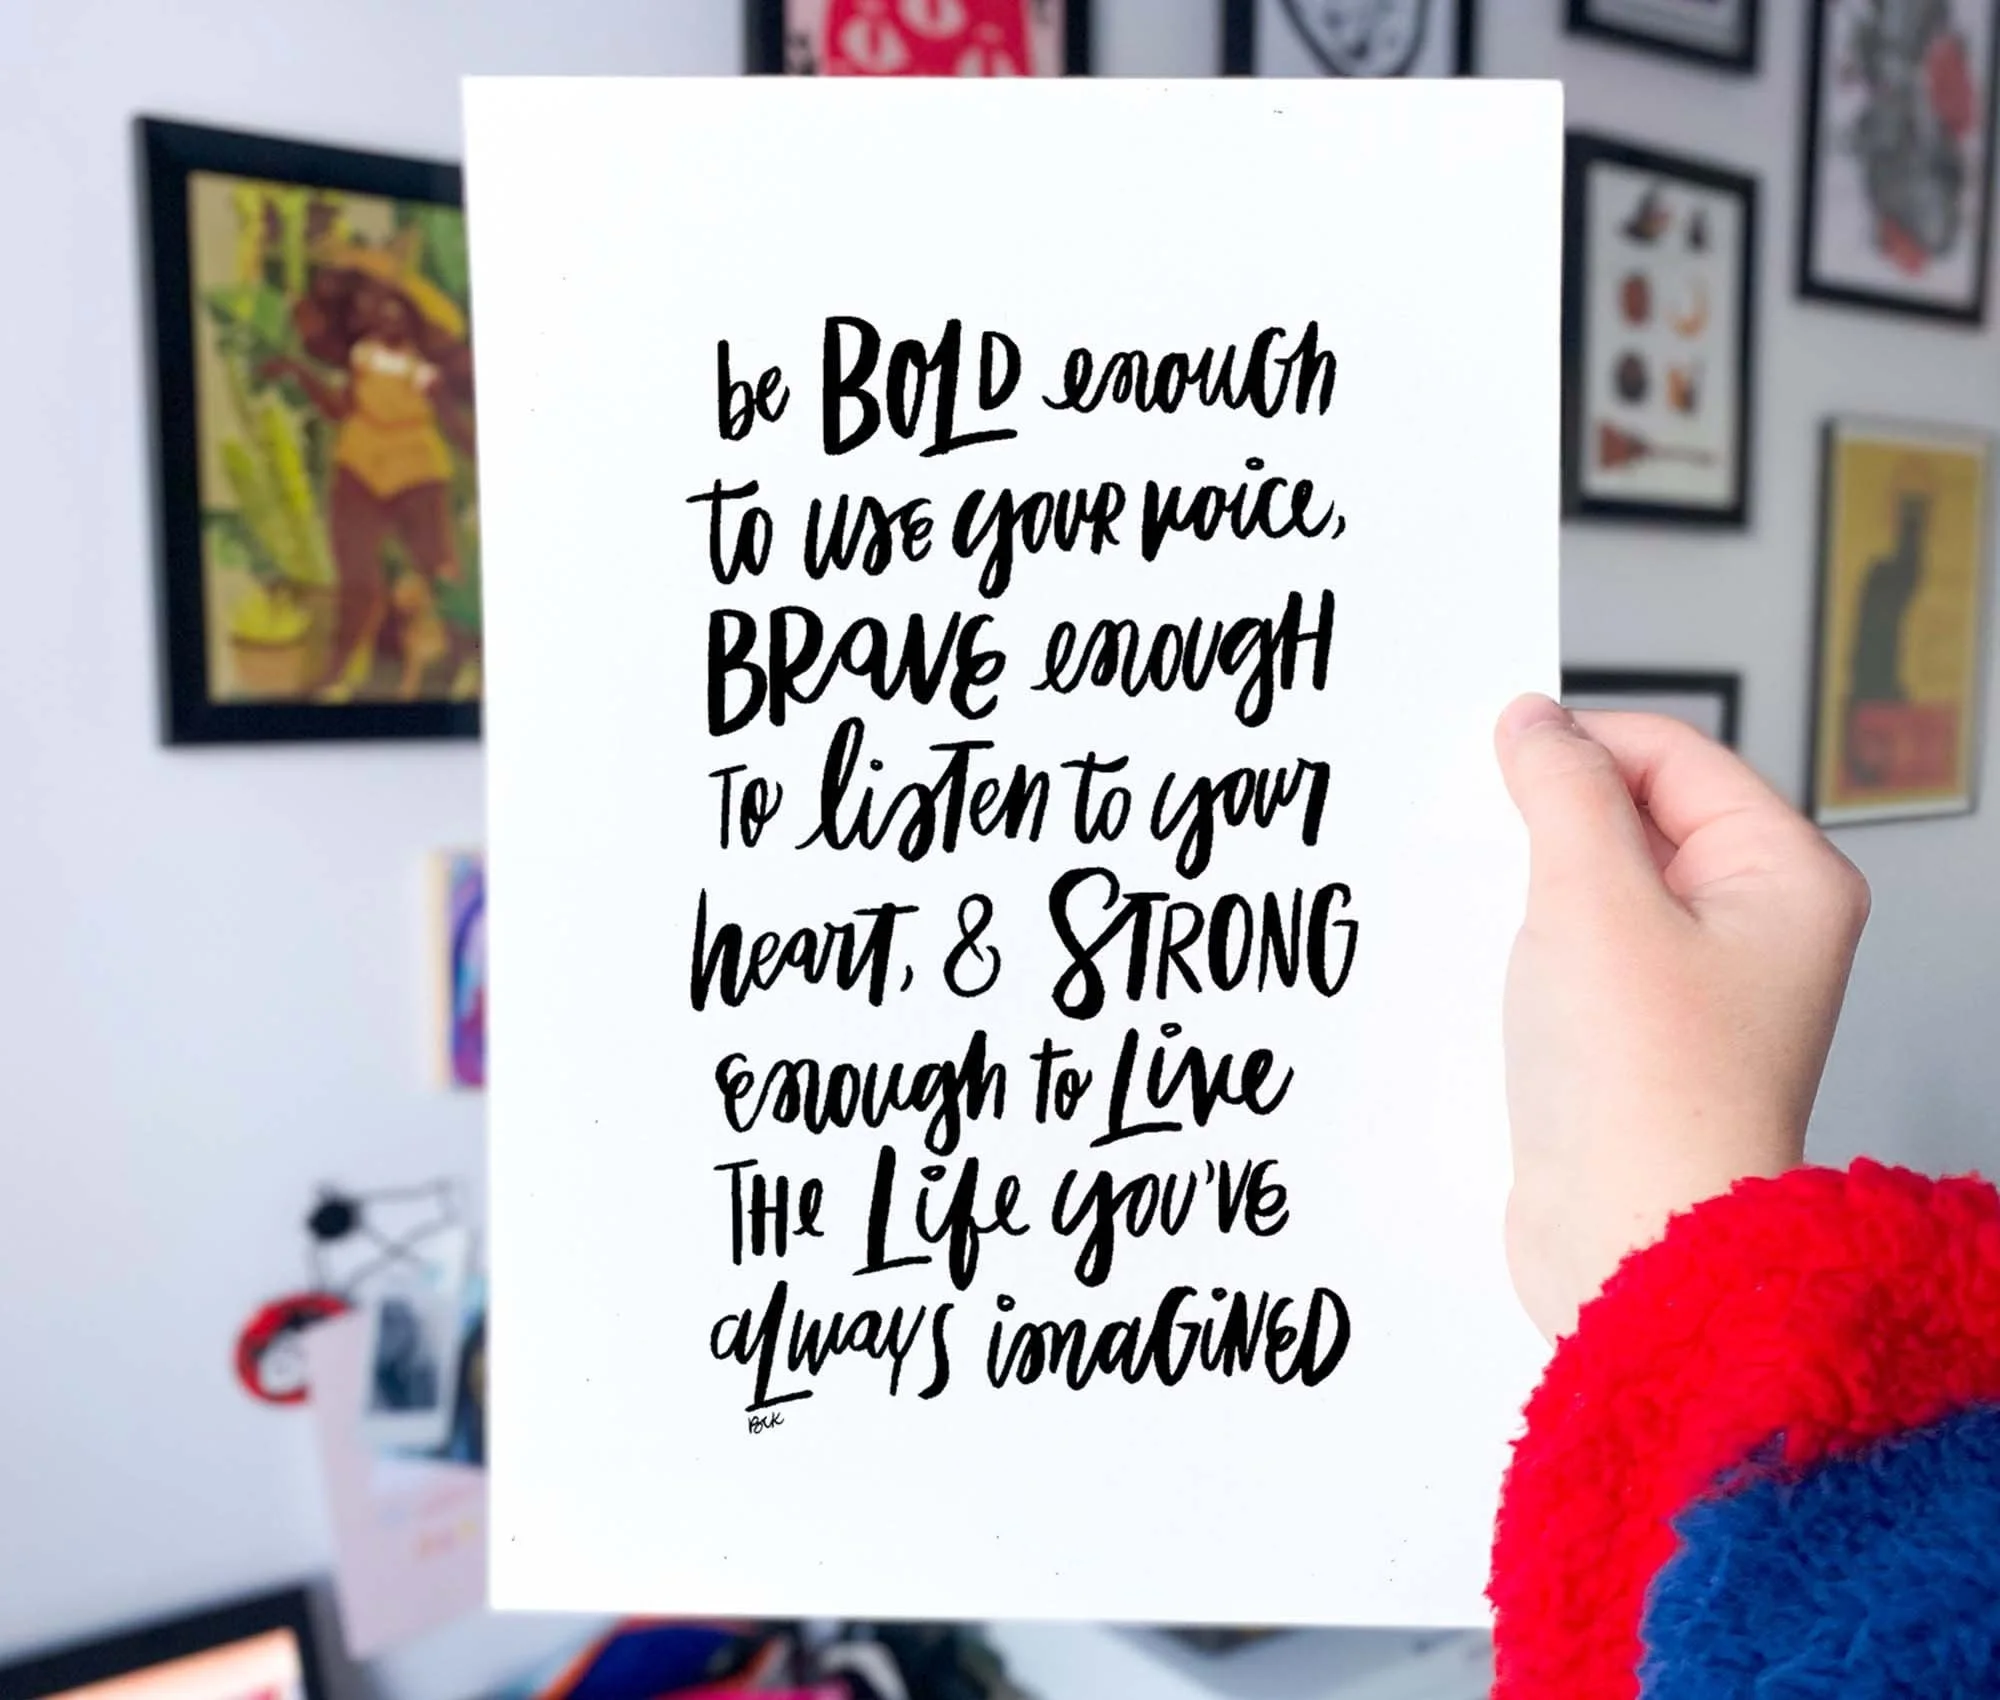 be BOLD enouGh
to use youR voice,
BRavE enougH
To lisTen to your
hearT, & STRONG
enough to Live
THe Life you'vE
aLways imaGiNED